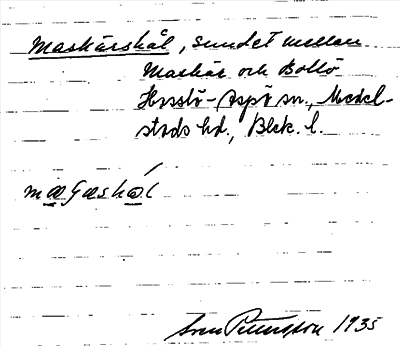 Maskärshål, sundet mellan
Maskär och Bollö
Hasslö-Aspö sn., Medel-
stads hd., Blek. l.
Sven Petersson 1935